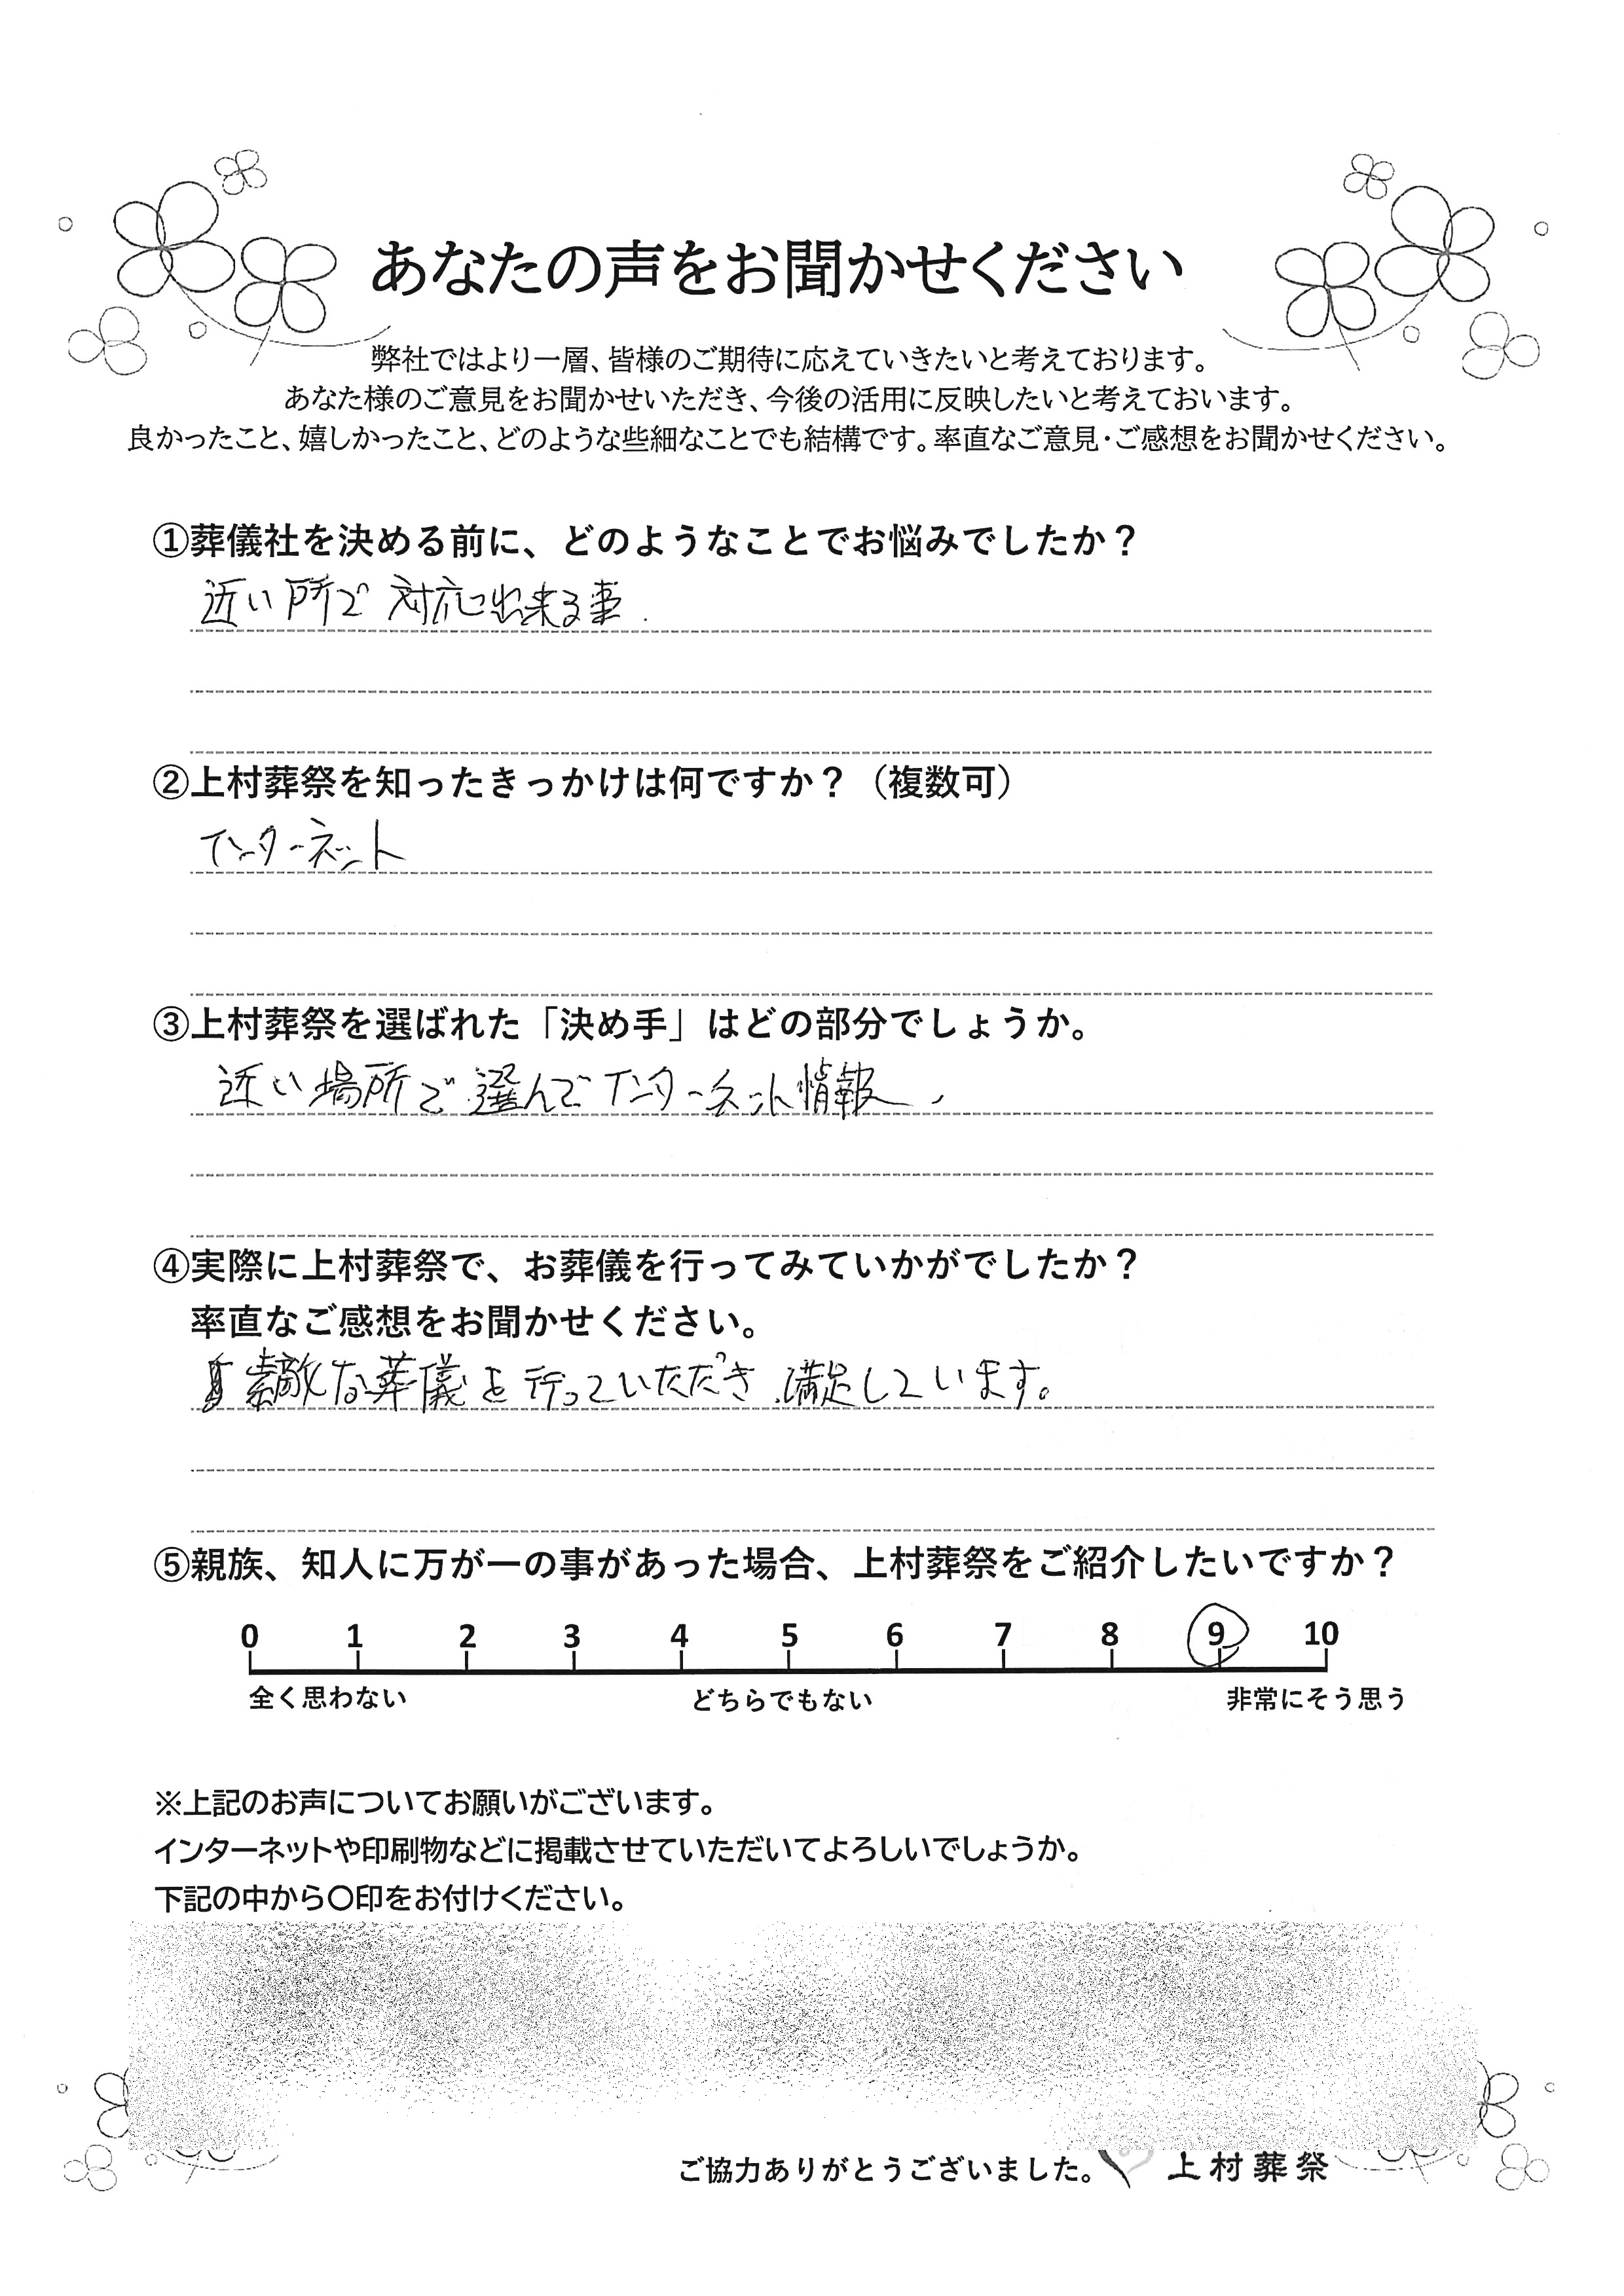 あなたの声をお聞かせください
弊社ではより一層、皆様のご期待に応えていきたいと考えております。
あなた様のご意見をお聞かせいただき、今後の活用に反映したいと考えておいます。
良かったこと、嬉しかったこと、どのような些細なことでも結構です。率直なご意見・ご感想をお聞かせください。
①葬儀社を決める前に、どのようなことでお悩みでしたか？
近い所で対応出来る事.
②上村葬祭を知ったきっかけは何ですか？（複数可）
インターネット
③上村葬祭を選ばれた「決め手」はどの部分でしょうか。
近い場所で選んでインターネット情報、
④実際に上村葬祭で、お葬儀を行ってみていかがでしたか？
率直なご感想をお聞かせください。
素敵な葬儀を行っていただき、満足しています。
⑤親族、知人に万が一の事があった場合、上村葬祭をご紹介したいですか？
0 1 2 3 4 5 6 7 8 9 10
全く思わない どちらでもない 非常にそう思う
※上記のお声についてお願いがございます。
インターネットや印刷物などに掲載させていただいてよろしいでしょうか。
下記の中から〇印をお付けください。
ご協力ありがとうございました。 上村葬祭